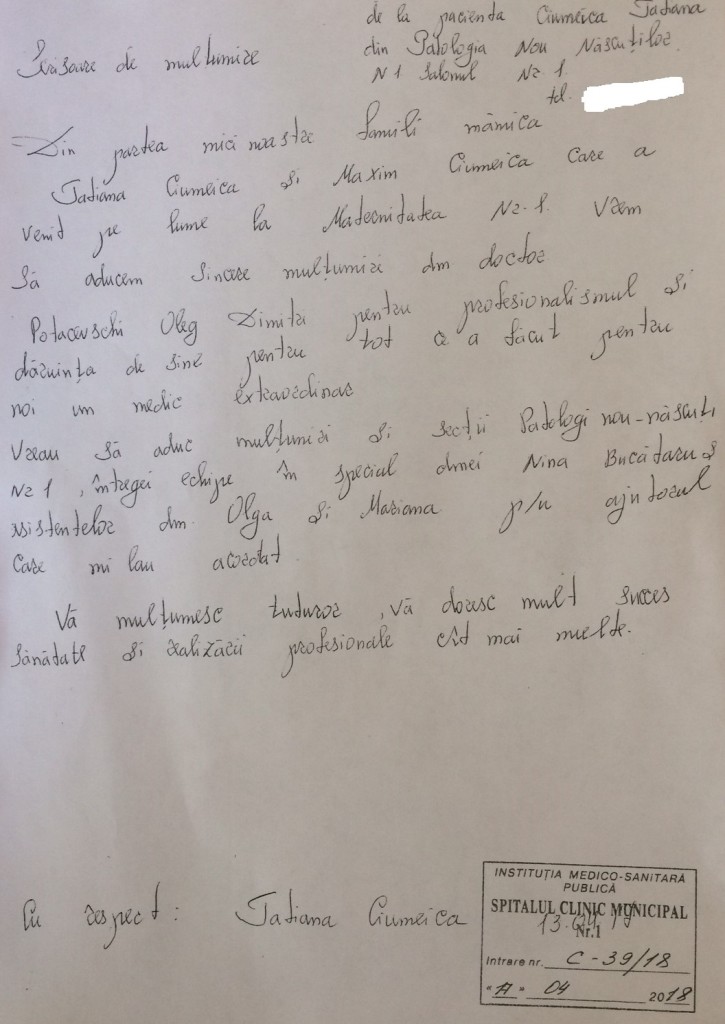 de la pacienta Ciumeica Tatiana
Scrisoare de mulțumire
din Patologia Nou Născuților
N1 Salonul Nr. 1.
tel.
Din partea mici noastre famili mămica
Tatiana Ciumeica și Maxim Ciumeica care a
venit pe lume la Maternitatea Nr. 1. Vrem
să aducem sincere mulțumiri dm doctor
Potacevschi Oleg Dimitri pentru profesionalismul și
dăruința de sine pentru tot ce a făcut pentru
noi un medic extraordinar
Vreau să aduc mulțumiri și secții Patologi nou-născuți
Nr 1, întregei echipe în special dmei Nina Bucătaru și
asistentelor dm. Olga și Mariana p/u ajutorul
care mi lau acordat.
Vă mulțumesc tuturor, vă doresc mult succes
sănătate și realizării profesionale cît mai multe.
Cu respect: Tatiana Ciumeica
INSTITUȚIA MEDICO-SANITARĂ
PUBLICĂ
SPITALUL CLINIC MUNICIPAL
Nr.1
Intrare nr. C-39/18
04 2018